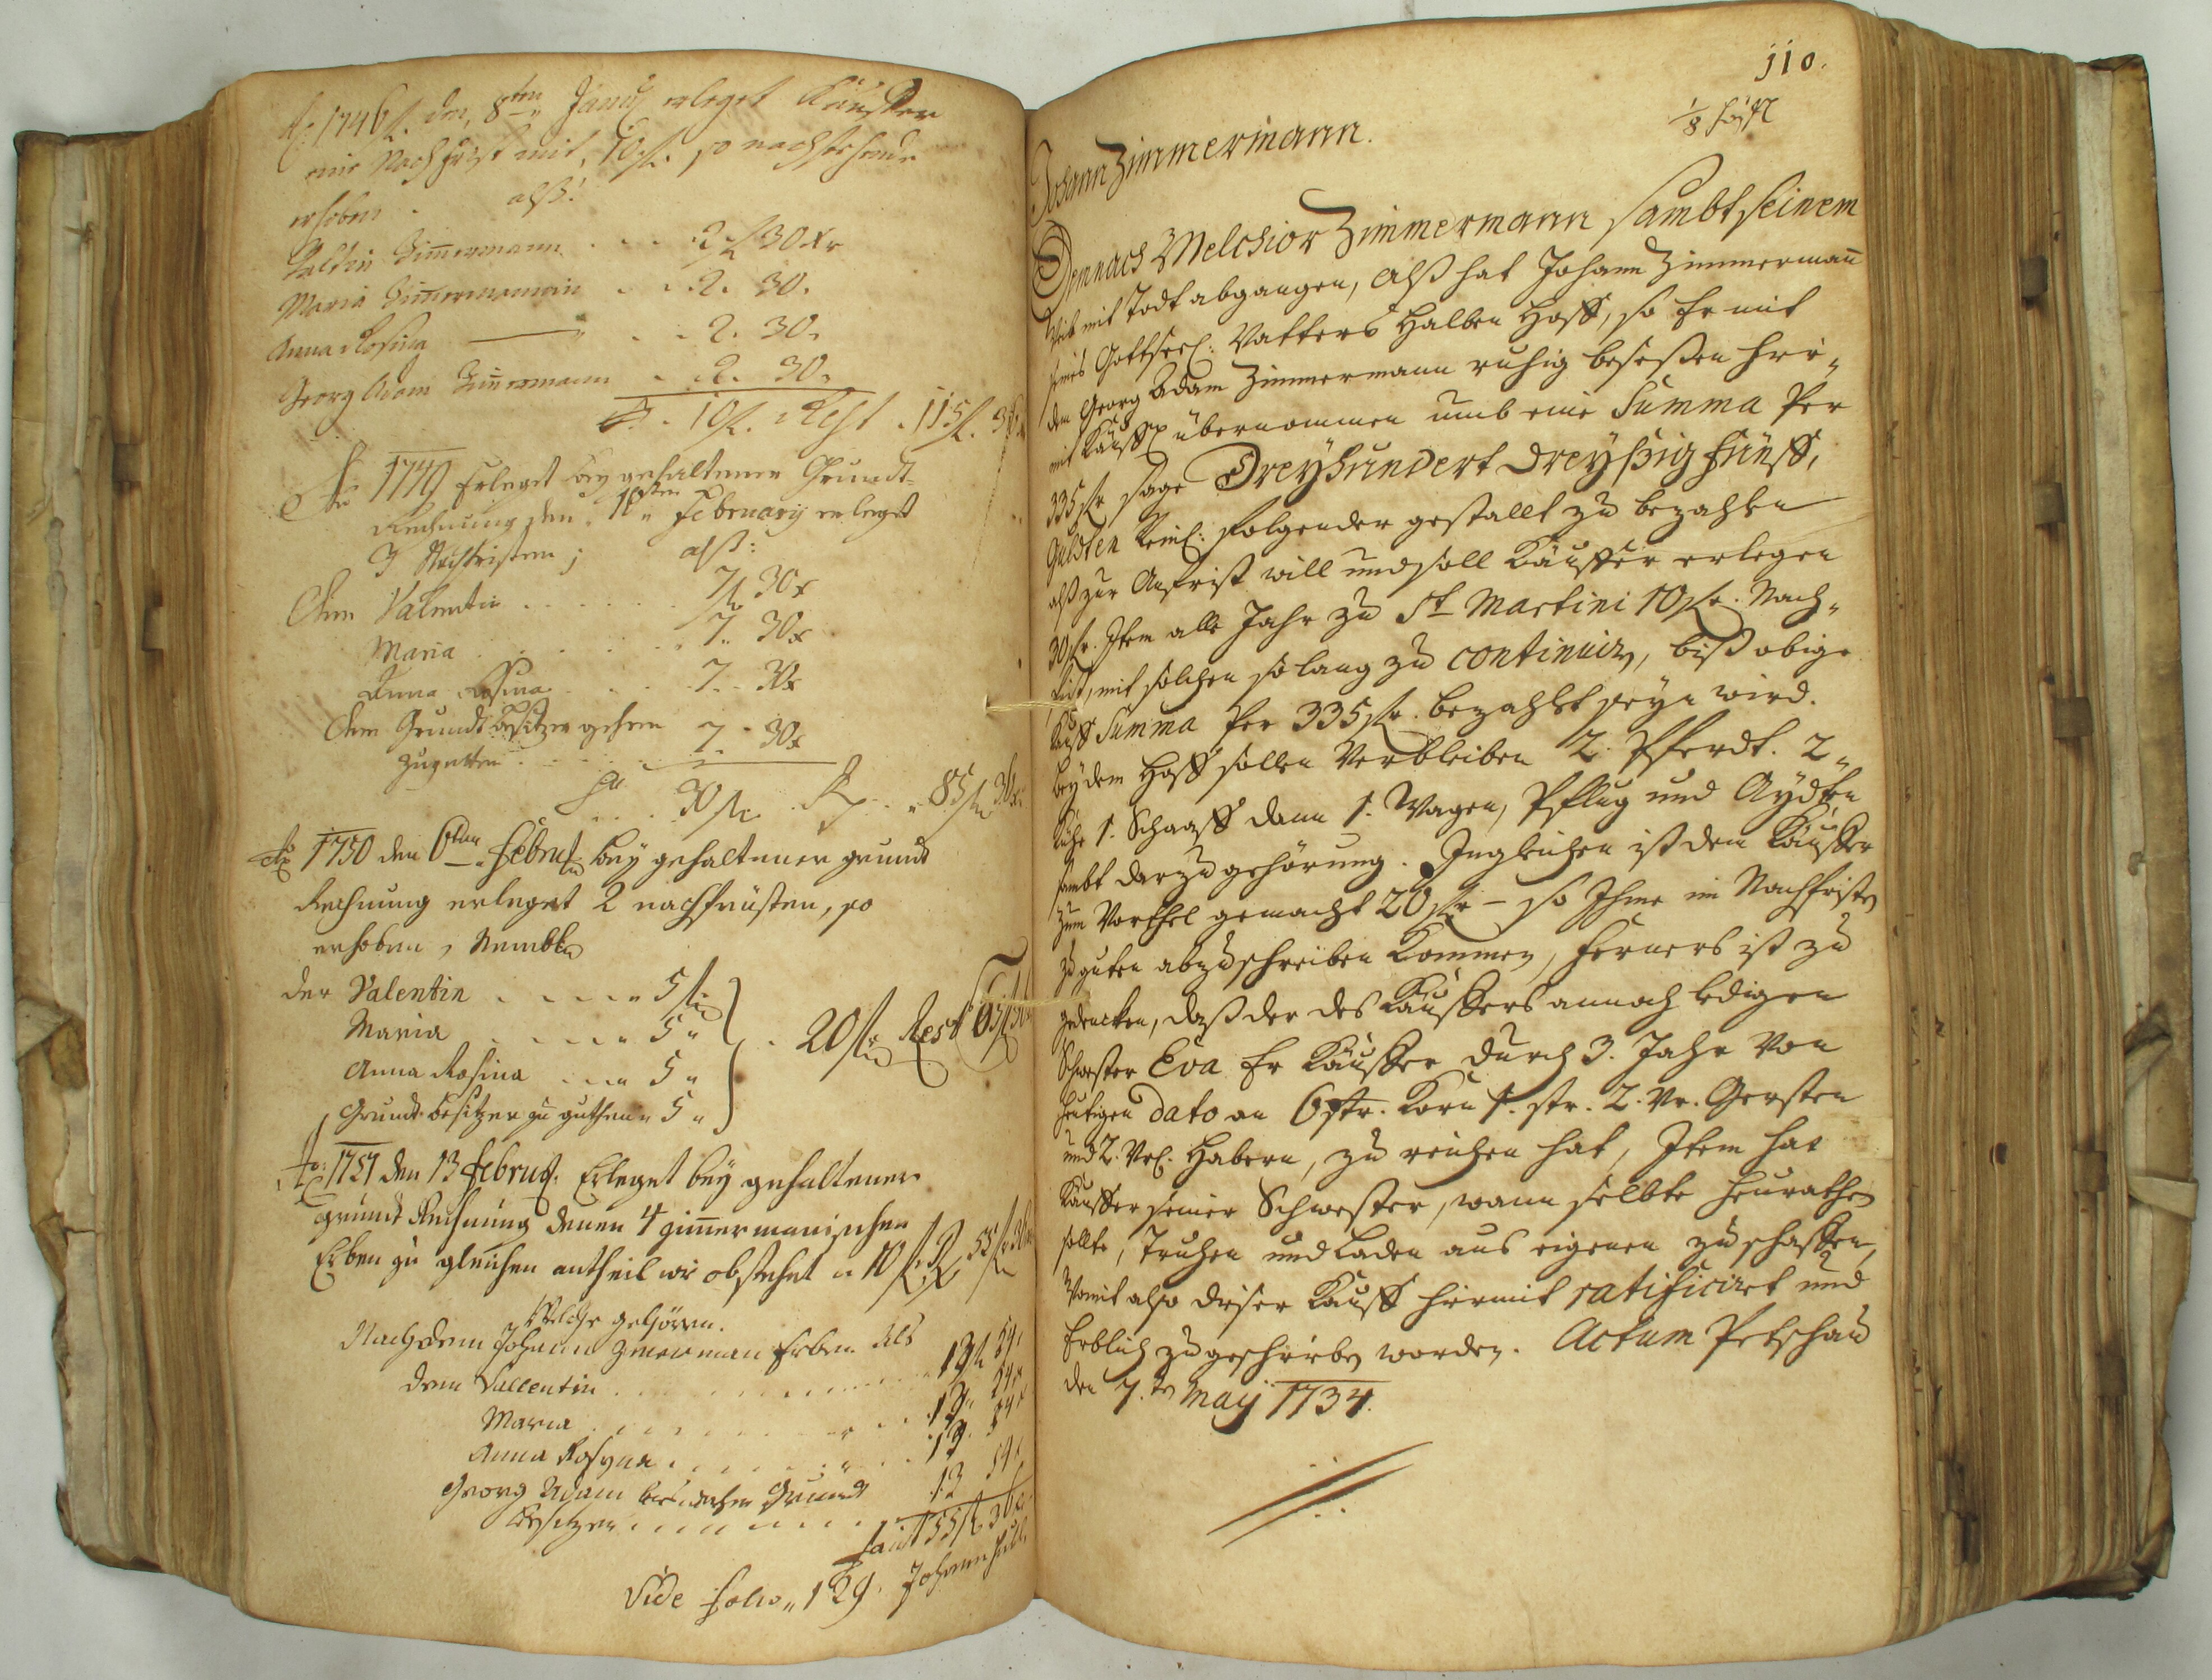 Ao 1746. den 8ten Januÿ erleget Kauffer
eine Nachfrist mit 10 fl. so nachstehende
erhoben. alß:
Valtin Zim̄ermann . . . 2 fl 30 xr
Maria Zim̄ermannin . . 2. 30.
Anna Rosina — " . . 2. 30.
Georg Adam Zim̄ermann . 2. 30.
10 fl. Rest . 115 fl. 36
Ao 1749 Erleget bey gehaltener Grundt-
Rechnung den 10ten February erleget
3 Nachfristen; alß:
Dem Valentin . . . . 7 fl 30 x
Maria . . . . . 7. 30 x
Anna Rosina . . . . 7. 30 x
Dem Grundtbesitzer gehen
zugutten . . . . . 7. 30 x
Sa . . . 30 fl. R . . 85 fl 36 x
Ao 1750 den 6ten Febru bey gehaltener grundt
Rechnung erleget 2 nachfrüsten, so
erhoben, Nembl
der Valentin . . . . 5 fl
Maria . . . . 5 "
Anna Rosina . . . 5 "
Grundt besitzer zu guthen " 5 "
. 20 fl Rest 65 fl 36
Ao 1751 den 13 Febru. Erleget bey gehaltener
grundt Rechnung denen 4 zim̄ermanischen
Erben zu gleichen antheil wie obstehet " 10 fl. R 55 fl 36
Welche gehören.
Nachdem Johann Zimerman Erben als
dem Vallentin . . . . . 13 fl 54
Maria . . . . . 13 " 54 x
Anna Rosyna . . . . . 13. 54 x
Georg Adam Grundt
besitzer . . . . . 13 54
55 fl 36
Vide folio " 129. Johann
110.
1/8 Höffl
Johann Zimmermann.
Demnach Melchior Zimmermann sambt seinem
Weib mit Todt abgangen, Alß hat Johann Zimmerman̄
seines Gottseel: Vatters Halben Hoff, so Er mit
den Georg Adam Zimmermann ruhig beseßen hie-
mit Kauffl übernommen umb eine Summa Per
335 fl sage Dreyhundert Dreyßig fünff,
Gulden Reinl: Folgender gestallt zu bezahlen
alß zur Anfrist will und soll Kauffer erlegen
30 fl. Item alle Jahr zu St Martini 10 fl. Nach-
frist, mit solchen so lang zu continuirn, biß obige
Kauff Summa Per 335 fl. bezahlt seyn wird.
bey dem Hoff sollen Verbleiben 2. Pferdt. 2
Kühe 1. Schaaff dann 1. Wagen, Pflug und Aydten
sambt darzu gehörung. Ingleichen ist dem Kauffer
zum Vorthel gemacht 20 fl — so Ihme im Nachfristen
zu guten abzuschreiben Kommen, ferners ist zu
gedencken, daß der des Kauffers annoch ledigen
Schwester Eva Er Kauffer durch 3. Jahr Von
heutigen dato an 6 str. Korn 1. str. 2. Vr. Gersten
und 2. Vrl. Habern, zu reichen hat, Item hat
Kauffer seiner Schwester, wann selbte heurathen
sollte, Truhen und Laden aus eigenen zu schaffen,
Womit also dieser Kauff hiermit ratificiret und
Erblich zugeschrieben worden. Actum Petschau
den 7.t May 1734.